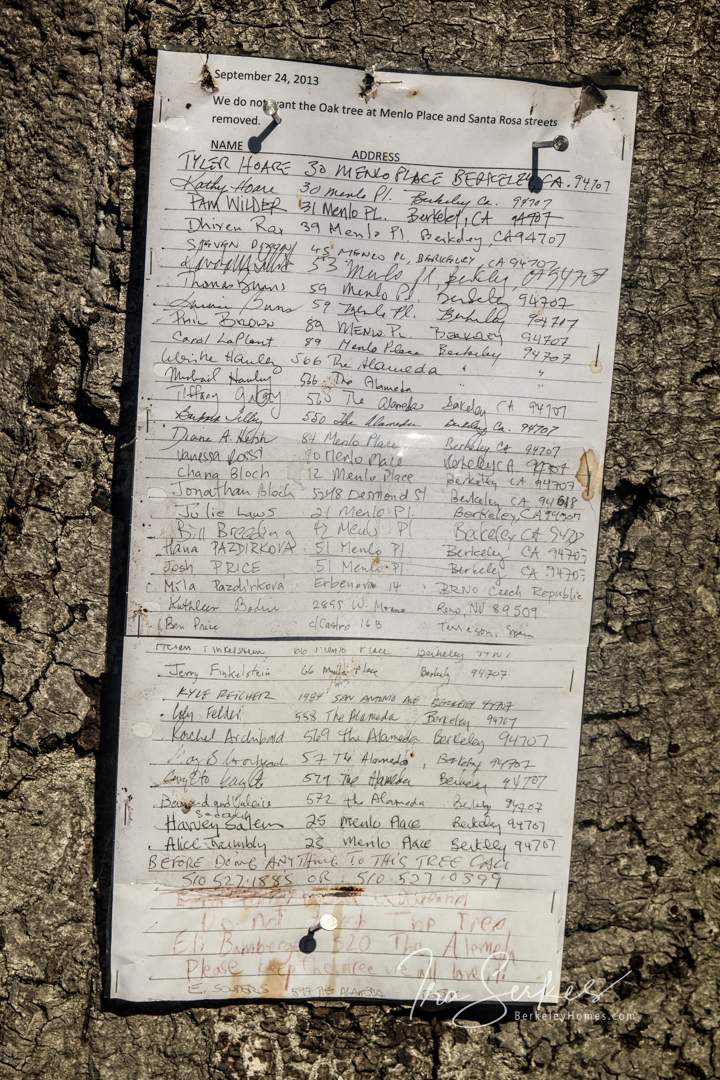 September 24, 2013
We do not want the Oak tree at Menlo Place and Santa Rosa streets
removed.
NAME ADDRESS
TYLER HOARE 30 MENLO PLACE BERKELEY CA. 94707
Kathy Hoare 30 Menlo Pl. Berkeley Ca. 94707
PAM WILDER 31 Menlo PL. Berkeley, CA 94707
Dhiren 39 Menlo Pl. Berkeley, CA 94707
STEVEN 45 MENLO PL, BERKELEY, CA 94707
53 Menlo Pl Berkeley, CA 94707
Thomas Burns 59 Menlo Pl. Berkeley 94707
Burns 59 Menlo Pl. Berkeley 94707
PHIL BROWN 89 MENLO PL. BERKELEY 94707
Carol LaPlant 89 Menlo Place Berkeley 94707
Hanley 566 The Alameda " "
Michael Hanley 566 The Alameda "
Tiffany The Alameda Berkeley CA 94707
550 The Alameda Berkeley Ca. 94707
Diane A. 84 Menlo Place Berkeley Ca 94707
Vanessa 90 Menlo Place Berkeley CA 94707
Chana Bloch 12 Menlo Place Berkeley CA 94707
Jonathan Bloch 5248 Desmond St Berkeley CA 94618
Julie Laws 21 Menlo Pl Berkeley, CA 94707
Bill Breeding 42 Menlo Pl Berkeley CA
Hana PAZDIRKOVÁ 51 Menlo Pl. Berkeley CA
Josh PRICE 51 Menlo Pl. Berkeley, CA
Mila Pazdirková Erbenova 14 BRNO Czech Republic
Kathleen 2855 W. Reno, NV 89509
Ben Price c/Castro 16 B Spain
Finkelstein 66 Menlo Place Berkeley
Jerry Finkelstein 66 Menlo Place Berkeley 94707
KYLE REICHER 1984 SAN ANTONIO AVE BERKELEY 94707
Felder 558 The Alameda Berkeley 94707
Rachel Archibald 569 the Alameda Berkeley 94707
The Alameda, Berkeley 94707
579 The Alameda Berkeley 94707
Bernard and Valerie 572 the Alameda Berkeley 94707
Harvey Salem 25 Menlo Place Berkeley 94707
Alice 23 Menlo Place Berkeley 94707
BEFORE DOING ANYTHING TO THIS TREE CALL
510 527-1885 OR 510-527-0399
Do Not The Tree
Eli Bamberger 520 The Alameda
Please keep the tree we all love it
E. THE ALAMEDA
Ira Serkes
BerkeleyHomes.com